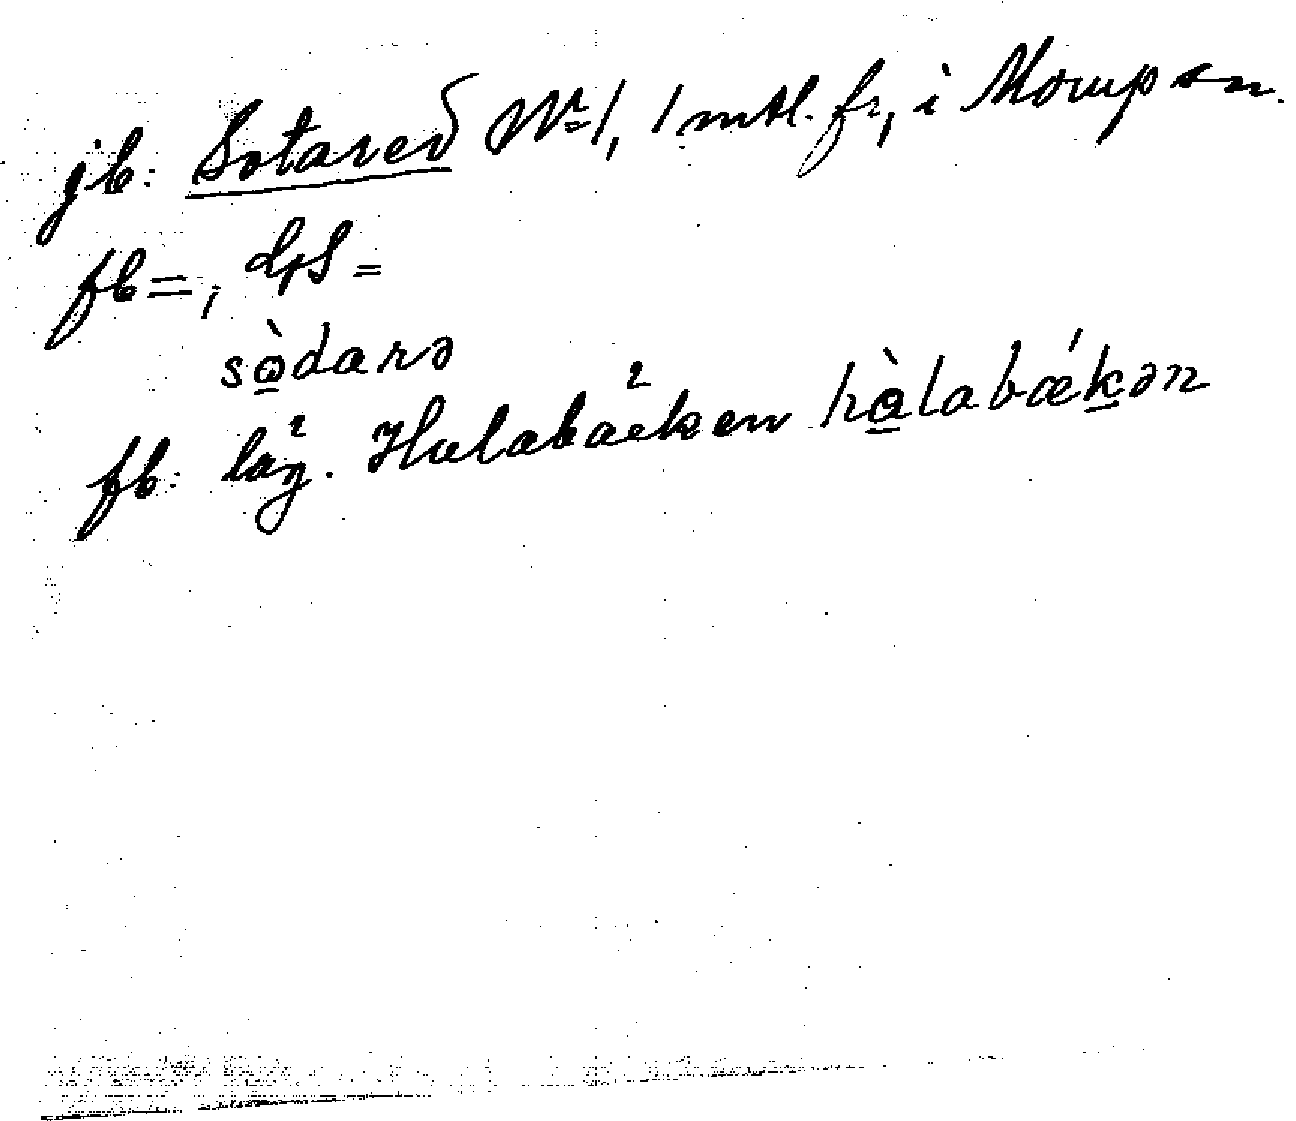 jb: Sotared Nr 1, 1 mtl. fr, i Morup sn.
fb =, dpS =
sòdarə
fb: läg. Halabäcken hàlabǽkən